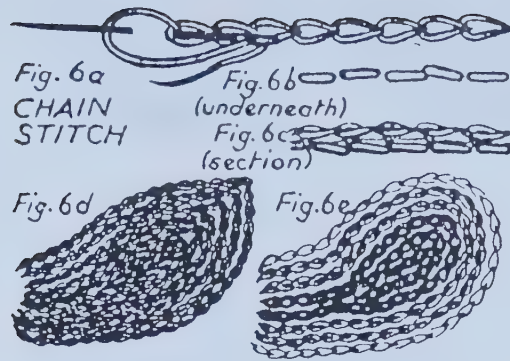 Fig. 6a
CHAIN
STITCH
Fig. 6b
(underneath)
Fig. 6c
(section)
Fig. 6d
Fig. 6e